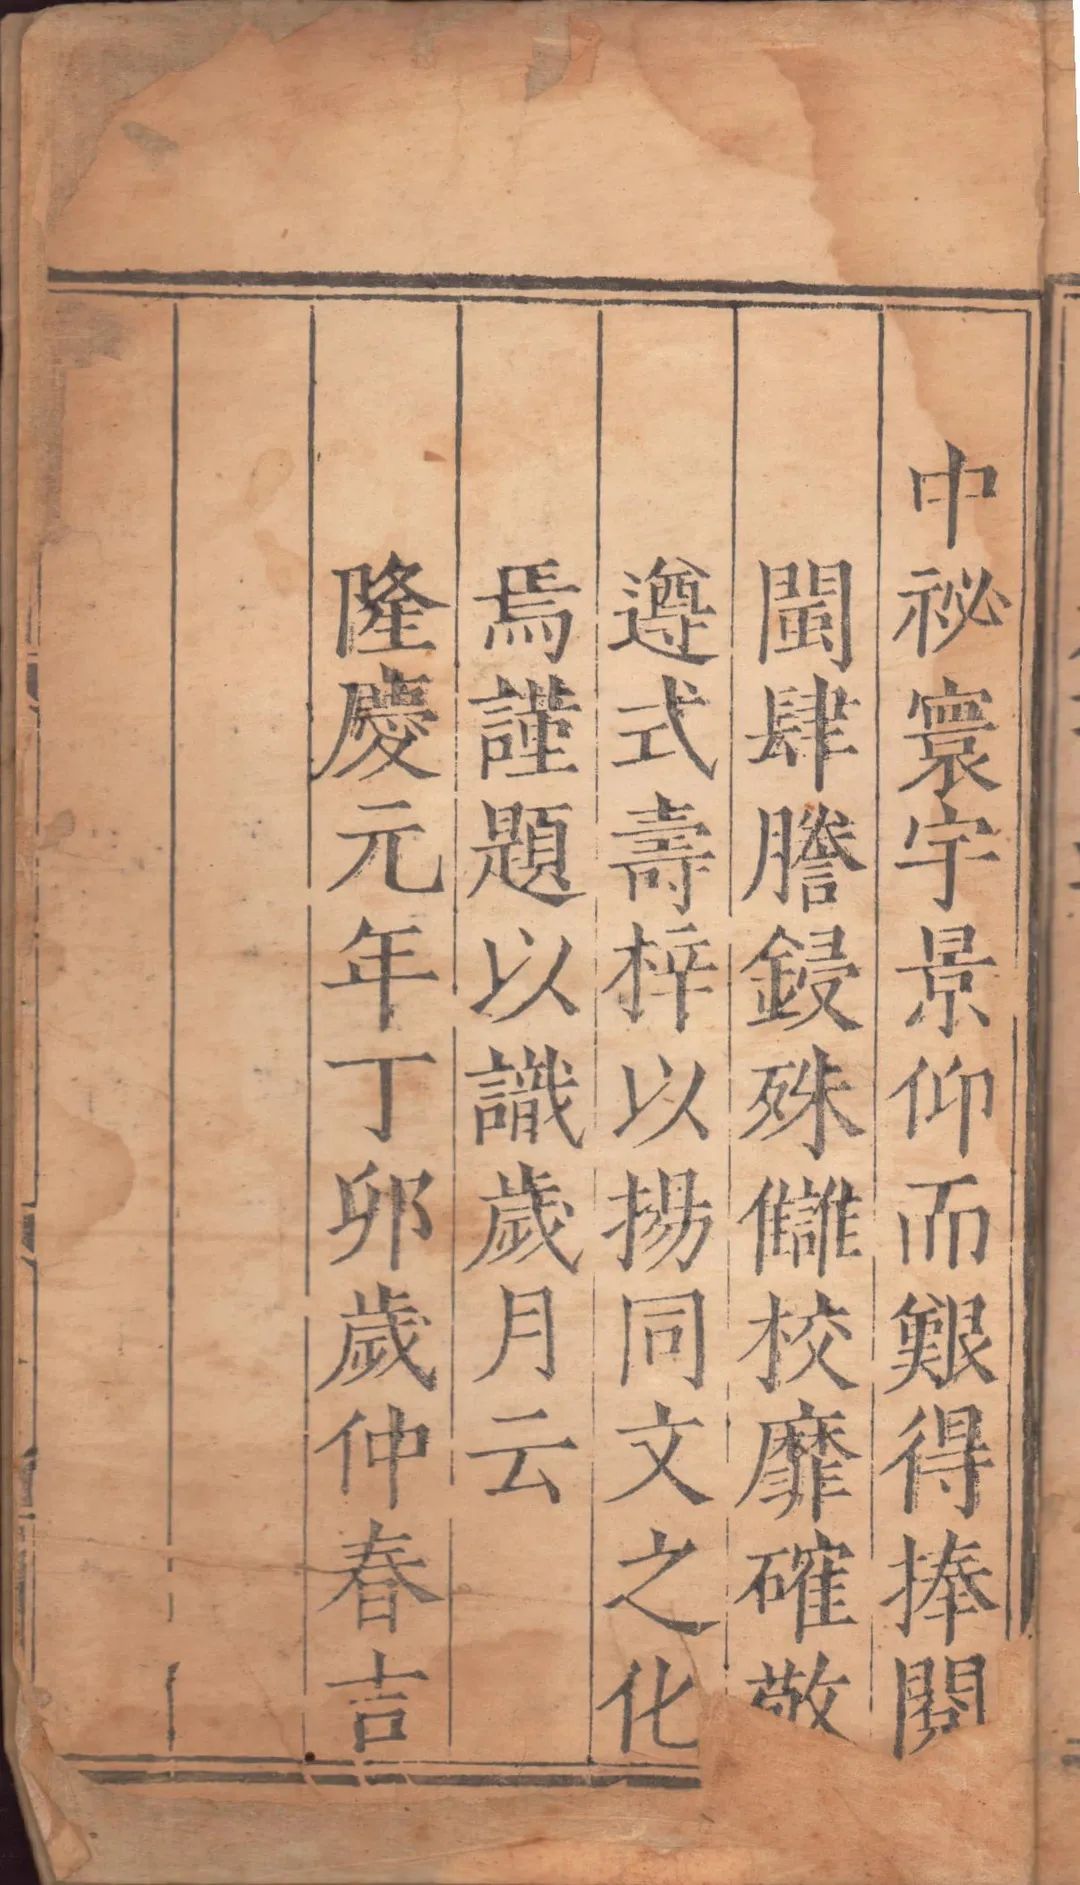 中祕寰宇景仰而艱得捧閱
閩肆謄鋟殊讎校靡確敬
遵式壽梓以揚同文之化
焉謹題以識歲月云
隆慶元年丁卯歲仲春吉